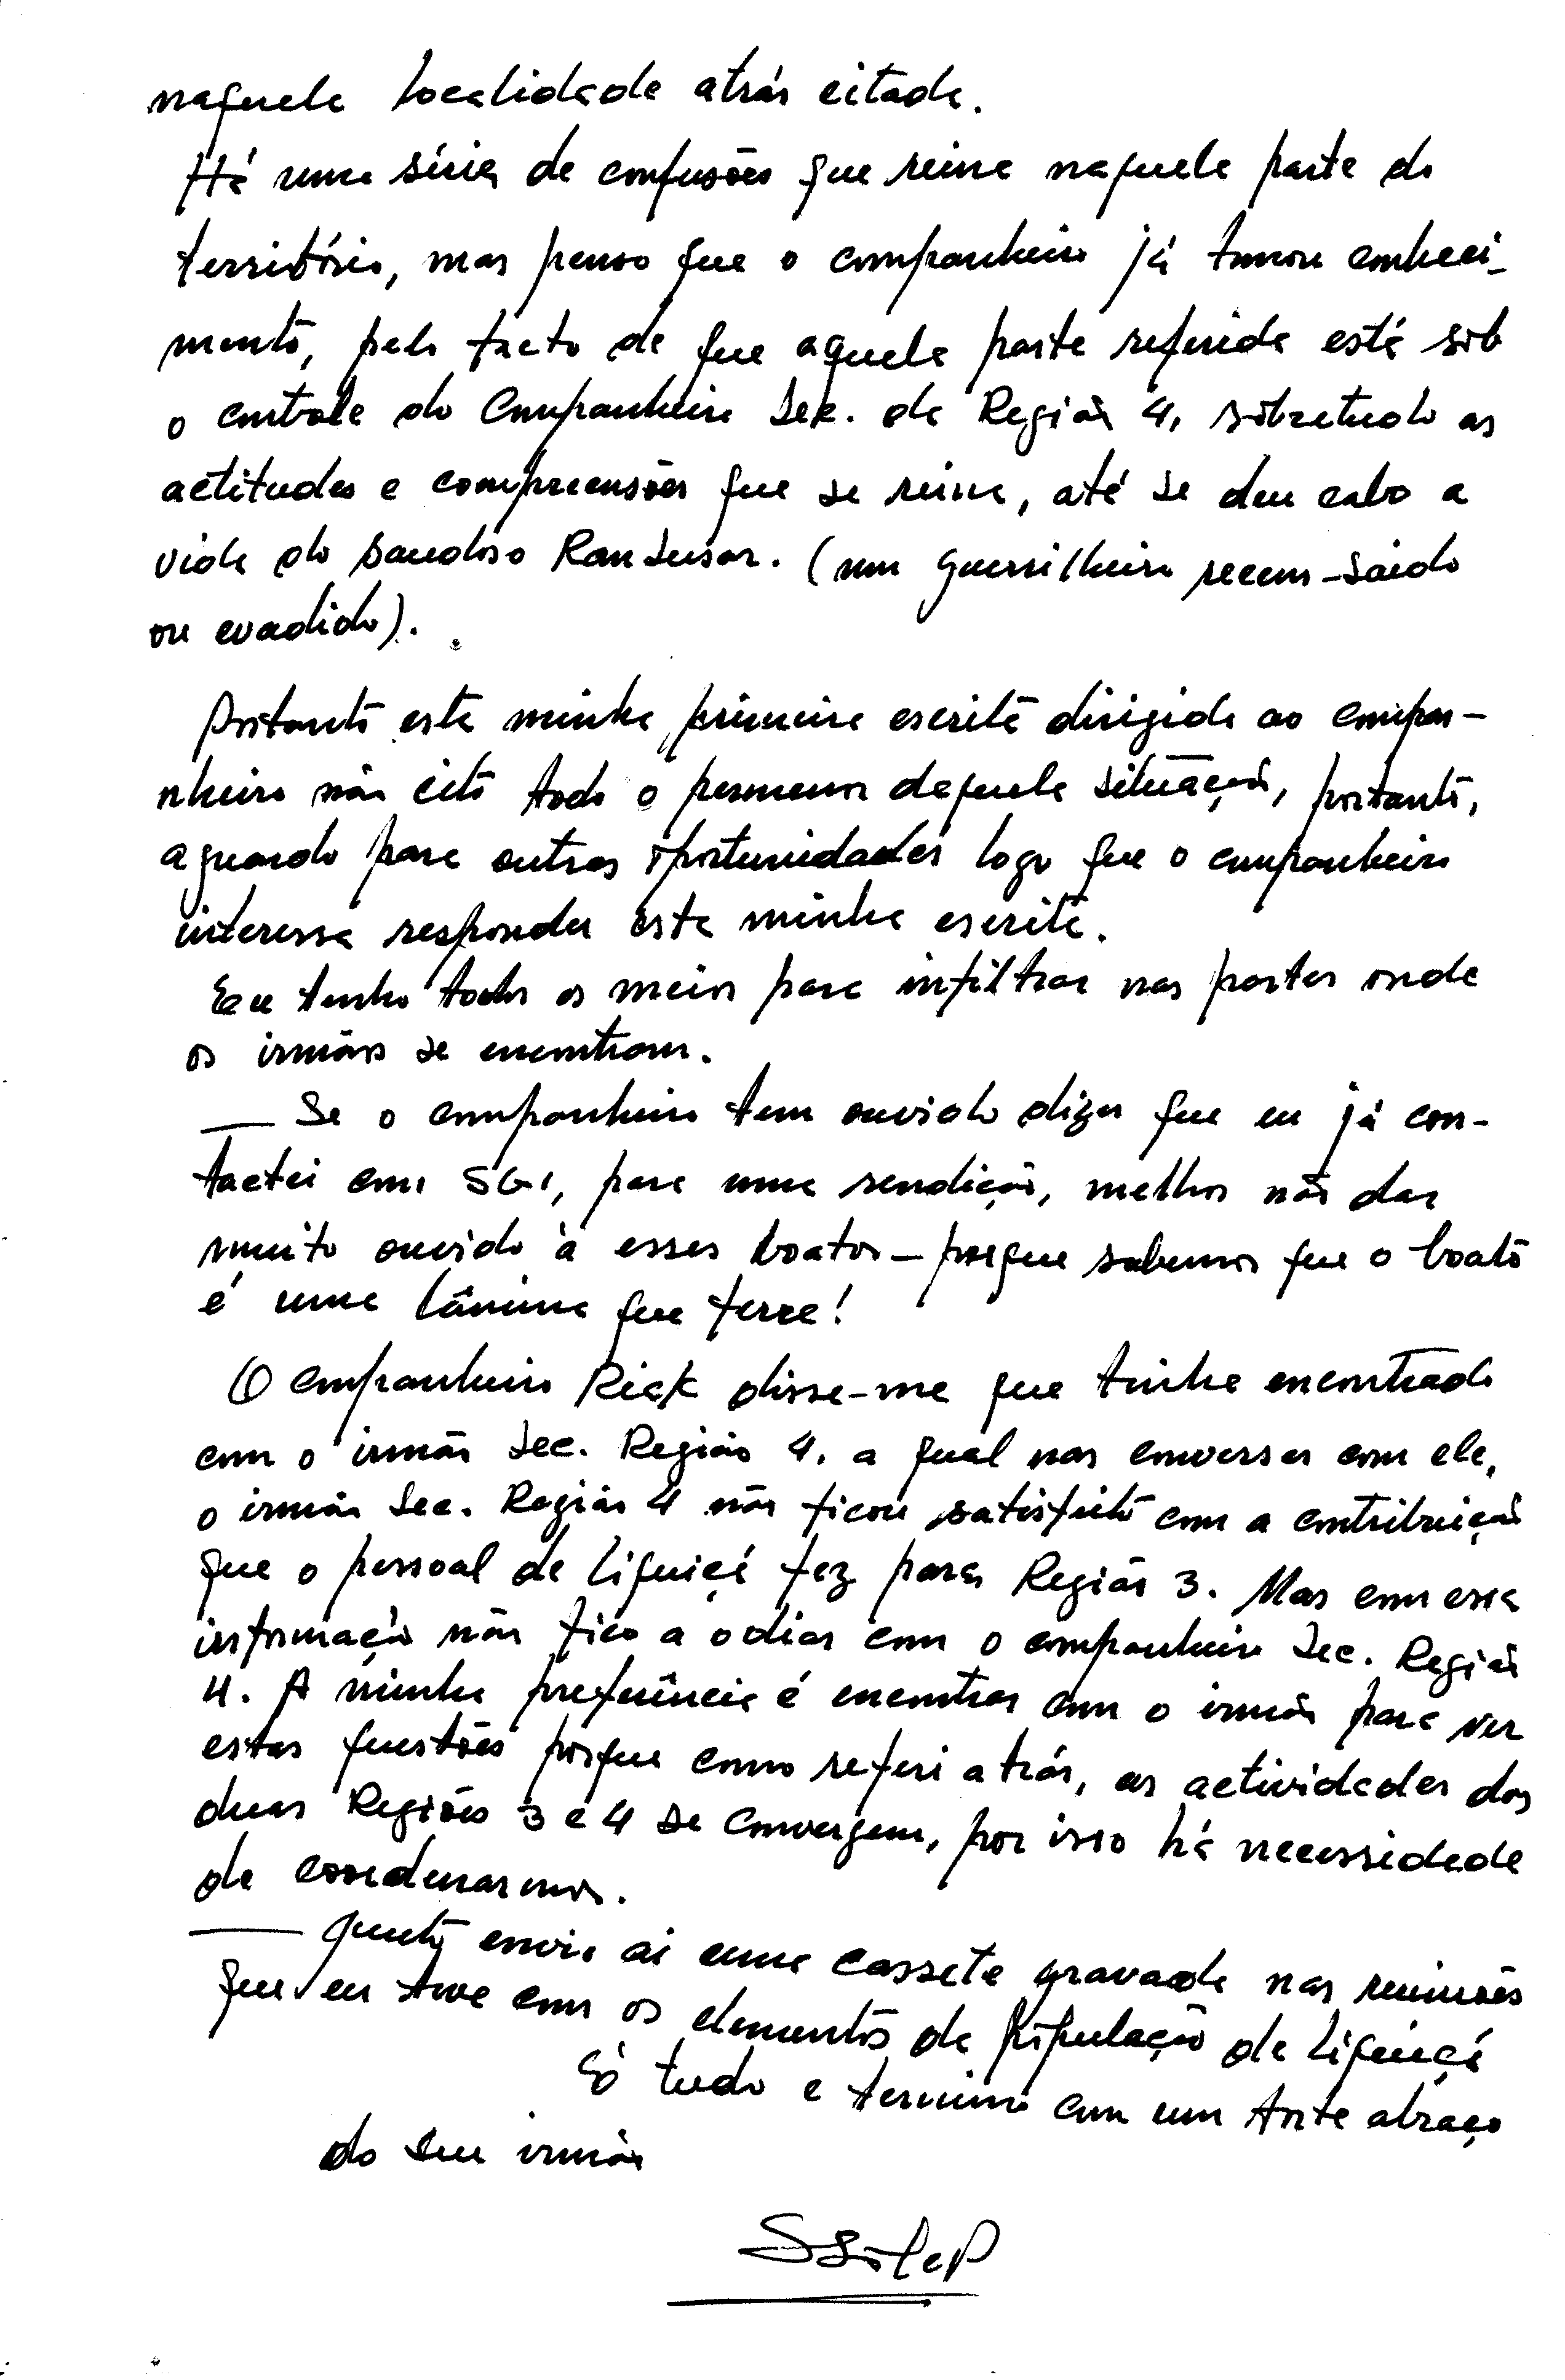 naquela localidade atrás citada.
Há uma séria de confusões que reina naquela parte do
território, mas penso que o companheiro já tomou conheci-
mento, pelo facto de que aquela parte referida está sob
o controle do Companheiro Sek. da Região 4, sobretudo as
actitudes e compreensões que se reina, até se deu cabo a
vida do saudoso Ran Susar. (um guerrilheiro recem-saído
ou evadido).
Portanto esta minha primeira escrita dirigida ao compa-
nheiro não cito todo o pormenor daquela situação, portanto,
aguardo para outras oportunidades logo que o companheiro
interessa responder esta minha escrita.
Eu tenho todos os meios para infiltrar nas partes onde
os irmãos se encontram.
— Se o companheiro tem ouvido dizer que eu já con-
tactei com SGI, para uma rendição, melhor não dar
muito ouvido à esses boatos – porque sabemos que o boato
é uma lâmina que ferre!
O companheiro Rick disse-me que tinha encontrado
com o irmão Sec. Região 4, a qual nas conversas com ele,
o irmão Sec. Região 4 não ficou satisfeito com a contribuição
que o pessoal de Liquiçá fez para Região 3. Mas com essa
informação não fico a odiar com o companheiro Sec. Região
4. A minha preferência é encontrar com o irmão para ver
estas questões porque como referi atrás, as actividades das
duas Regiões 3 e 4 se convergem, por isso há necessidade
de coordenarmos.
— Junto envio aí uma cassete gravada nas reuniões
que eu tive com os elementos da população de Liquiçá
Só tudo e termino com um forte abraço
do seu irmão